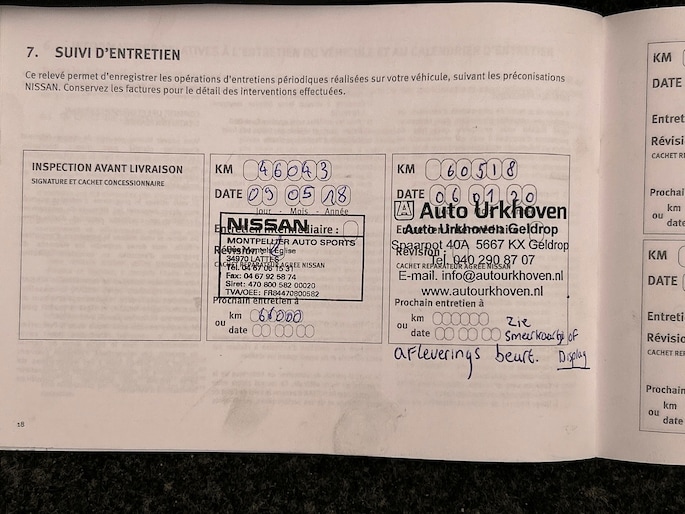 7. SUIVI D'ENTRETIEN
Ce relevé permet d'enregistrer les opérations d'entretiens périodiques réalisées sur votre véhicule, suivant les préconisations
NISSAN. Conservez les factures pour le détail des interventions effectuées.
INSPECTION AVANT LIVRAISON
SIGNATURE ET CACHET CONCESSIONNAIRE
KM 46043
DATE 09 05 18
Jour - Mois - Année
Entretien Intermédiaire :
NISSAN
MONTPELLIER AUTO SPORTS
Révision :
34970 LATTES
CACHET REPARATEUR AGREE NISSAN
Tel. 04 67 06 15 31
Fax: 04 67 92 58 74
Siret: 470 800 582 00020
TVA/OEE: FR84470800582
Prochain entretien à
km 66000
ou
date
KM 60518
DATE 06 01 20
Auto Urkhoven
Auto Urkhoven Geldrop
Spaarpot 40A 5667 KX Geldrop
Révision :
Tel. 040 290 87 07
CACHET REPARATEUR AGREE NISSAN
E-mail. info@autourkhoven.nl
www.autourkhoven.nl
Prochain entretien à
km
ou
date
zie
smeerkaartje of
afleverings beurt. Display
KM
DATE
Entret
Révisio
CACHET RE
Prochai
km
ou
date
KM
DATE
Entreti
Révisio
CACHET REP
Prochain
km
ou
date
18